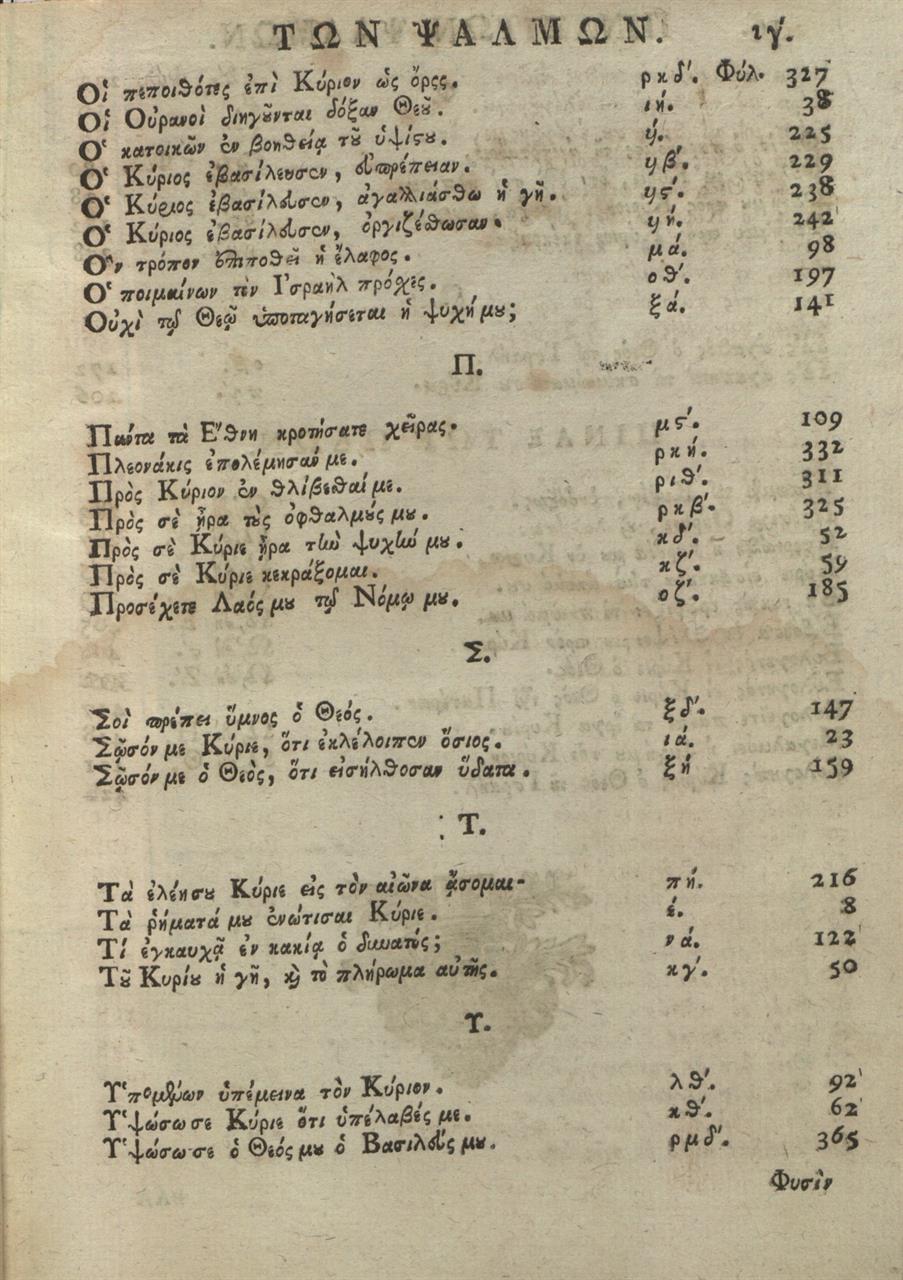 ΤΩΝ ΨΑΛΜΩΝ. ιγ΄.
Οἱ πεποιθότες ἐπὶ Κύριον ὡς ὄρος. ρκδ΄. Φύλ. 327
Οἱ Οὐρανοὶ διηγοῦνται δόξαν Θεοῦ. ιή. 38
Ὁ κατοικῶν ἐν βοηθείᾳ τοῦ ὑψίςου. ϟ΄. 225
Ὁ Κύριος ἐβασίλευσεν, εὐπρέπειαν. ϟβ΄. 229
Ὁ Κύριος ἐβασίλευσεν, ἀγαλλιάσθω ἡ γῆ. ϟς΄. 238
Ὁ Κύριος ἐβασίλευσεν, ὀργιζέσθωσαν. ϟή. 242
Ὃν τρόπον ἐπιποθεῖ ἡ ἔλαφος. μά. 98
Ὁ ποιμαίνων τὸν Ἰσραὴλ πρόχες. οθ΄. 197
Οὐχὶ τῷ Θεῷ ὑποταγήσεται ἡ ψυχή μου; ξά. 141
Π.
Πάντα τὰ Ἔθνη κροτήσατε χεῖρας. μς΄. 109
Πλεονάκις ἐπολέμησαν με. ρκή. 332
Πρὸς Κύριον ἐν θλίβεσθαί με. ριθ΄. 311
Πρὸς σὲ ἦρα τοὺς ὀφθαλμούς μου. ρκβ΄. 325
Πρὸς σὲ Κύριε ἦρα τὴν ψυχήν μου. κδ΄. 52
Πρὸς σὲ Κύριε κεκράξομαι. κζ΄. 59
Προσέχετε Λαός μου τῷ Νόμῳ μου. οζ΄. 185
Σ.
Σοὶ πρέπει ὕμνος ὁ Θεός. ξδ΄. 147
Σῶσόν με Κύριε, ὅτι ἐκλέλοιπεν ὅσιος. ιά. 23
Σῶσόν με ὁ Θεὸς, ὅτι εἰσήλθοσαν ὕδατα. ξή 159
Τ.
Τὰ ἐλέη σου Κύριε εἰς τὸν αἰῶνα ᾄσομαι. πή. 216
Τὰ ῥήματά μου ἐνώτισαι Κύριε. έ. 8
Τί ἐγκαυχᾷ ἐν κακίᾳ ὁ δυνατός; νά. 122
Τοῦ Κυρίου ἡ γῆ, καὶ τὸ πλήρωμα αὐτῆς. κγ΄. 50
Υ.
Ὑπομένων ὑπέμεινα τὸν Κύριον. λθ΄. 92
Ὑψώσω σε Κύριε ὅτι ὑπέλαβές με. κθ΄. 62
Ὑψώσω σε ὁ Θεός μου ὁ Βασιλεύς μου. ρμδ΄. 365
Φυσὶν